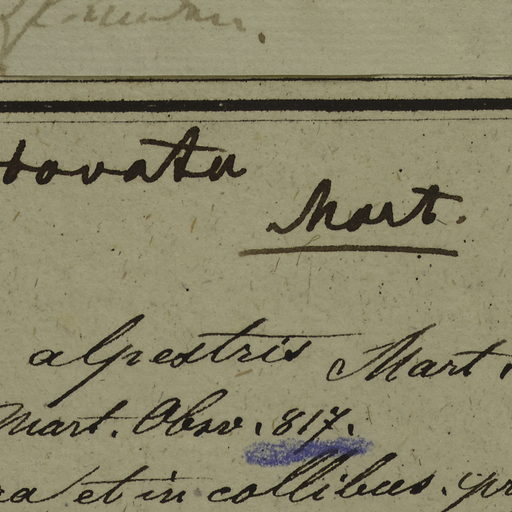 obovata
Mart.
alpestris Mart.
Mart. Obsv. 817.
et in collibus.